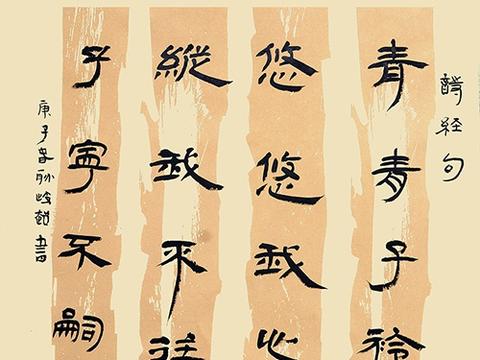 詩经句
青青子衿
悠悠我心
縱我不往
子寧不嗣
庚子春 書